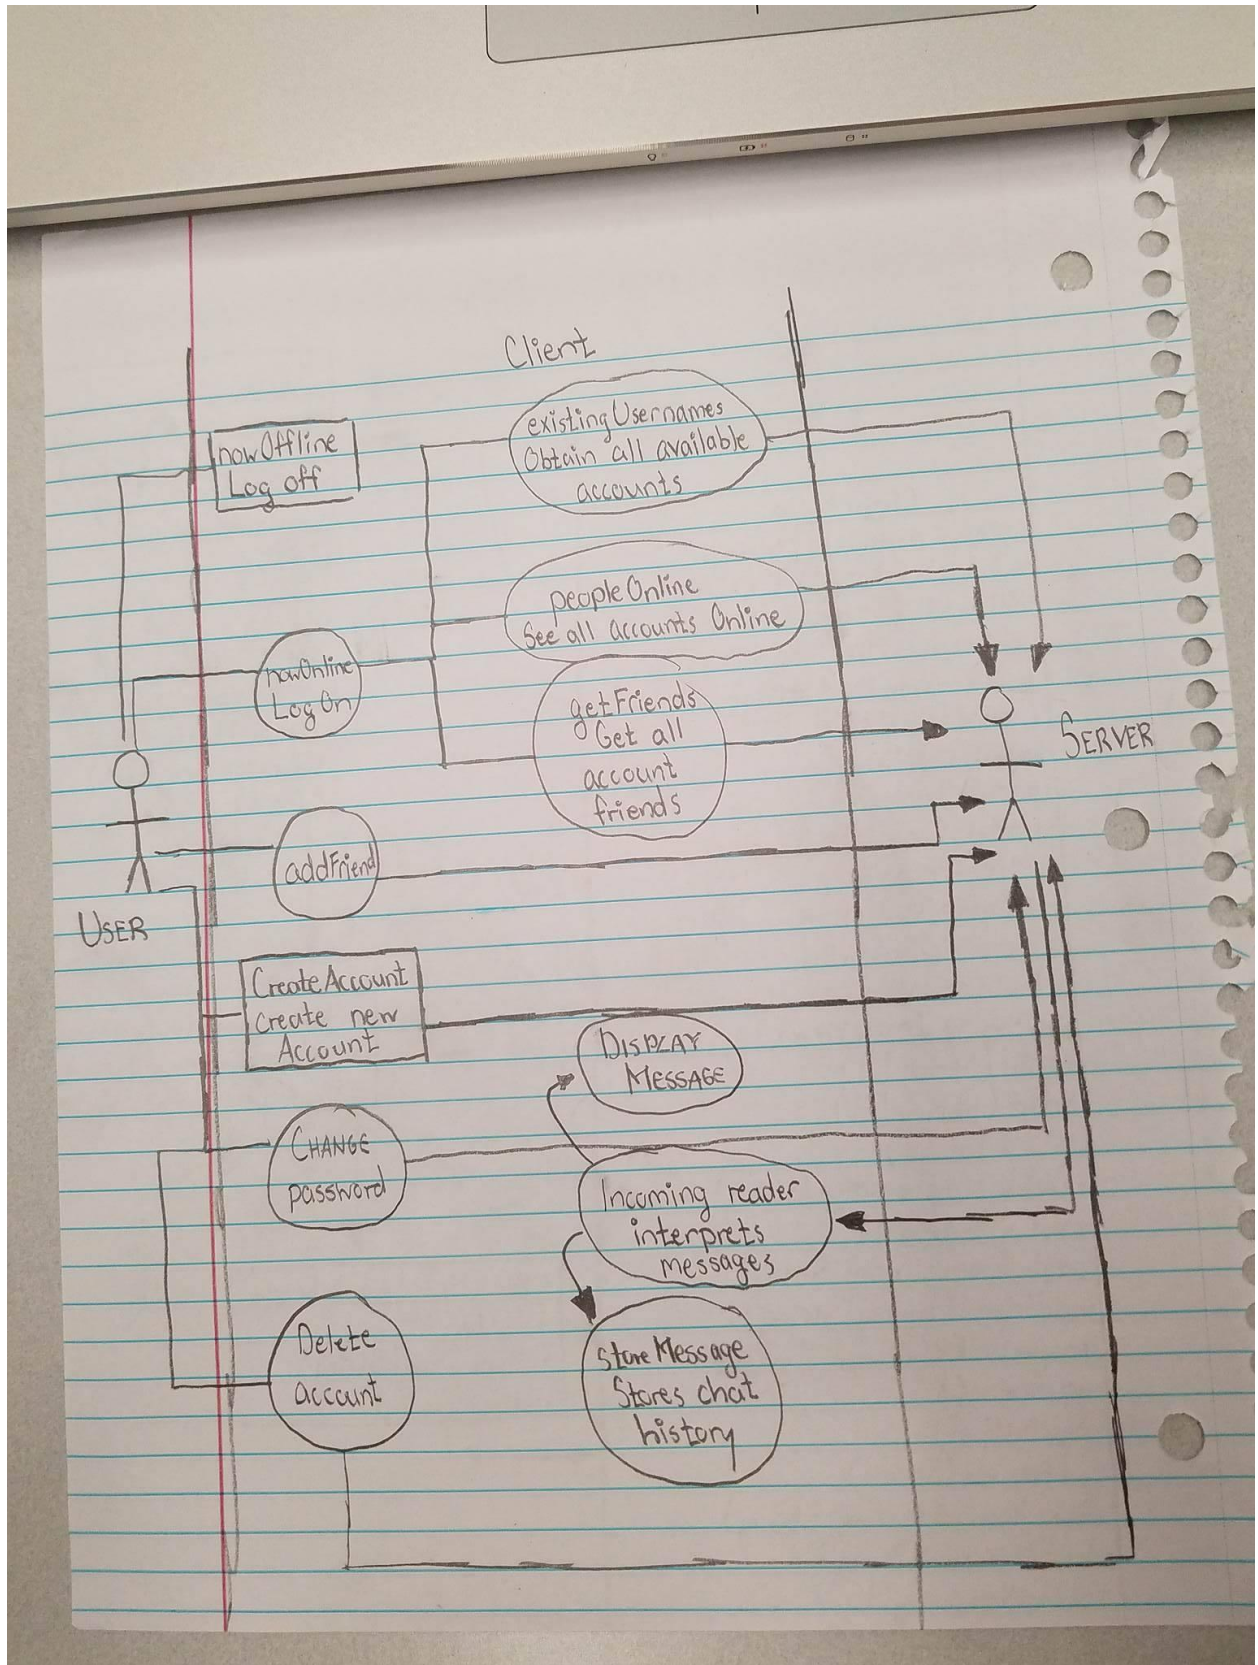 Client
existingUsernames
Obtain all available
accounts
nowOffline
Log off
peopleOnline
See all accounts Online
nowOnline
Log On
getFriends
Get all
account
friends
SERVER
addFriend
USER
CreateAccount
create new
Account
DISPLAY
MESSAGE
CHANGE
password
Incoming reader
interprets
messages
Delete
account
StoreMessage
Stores chat
history